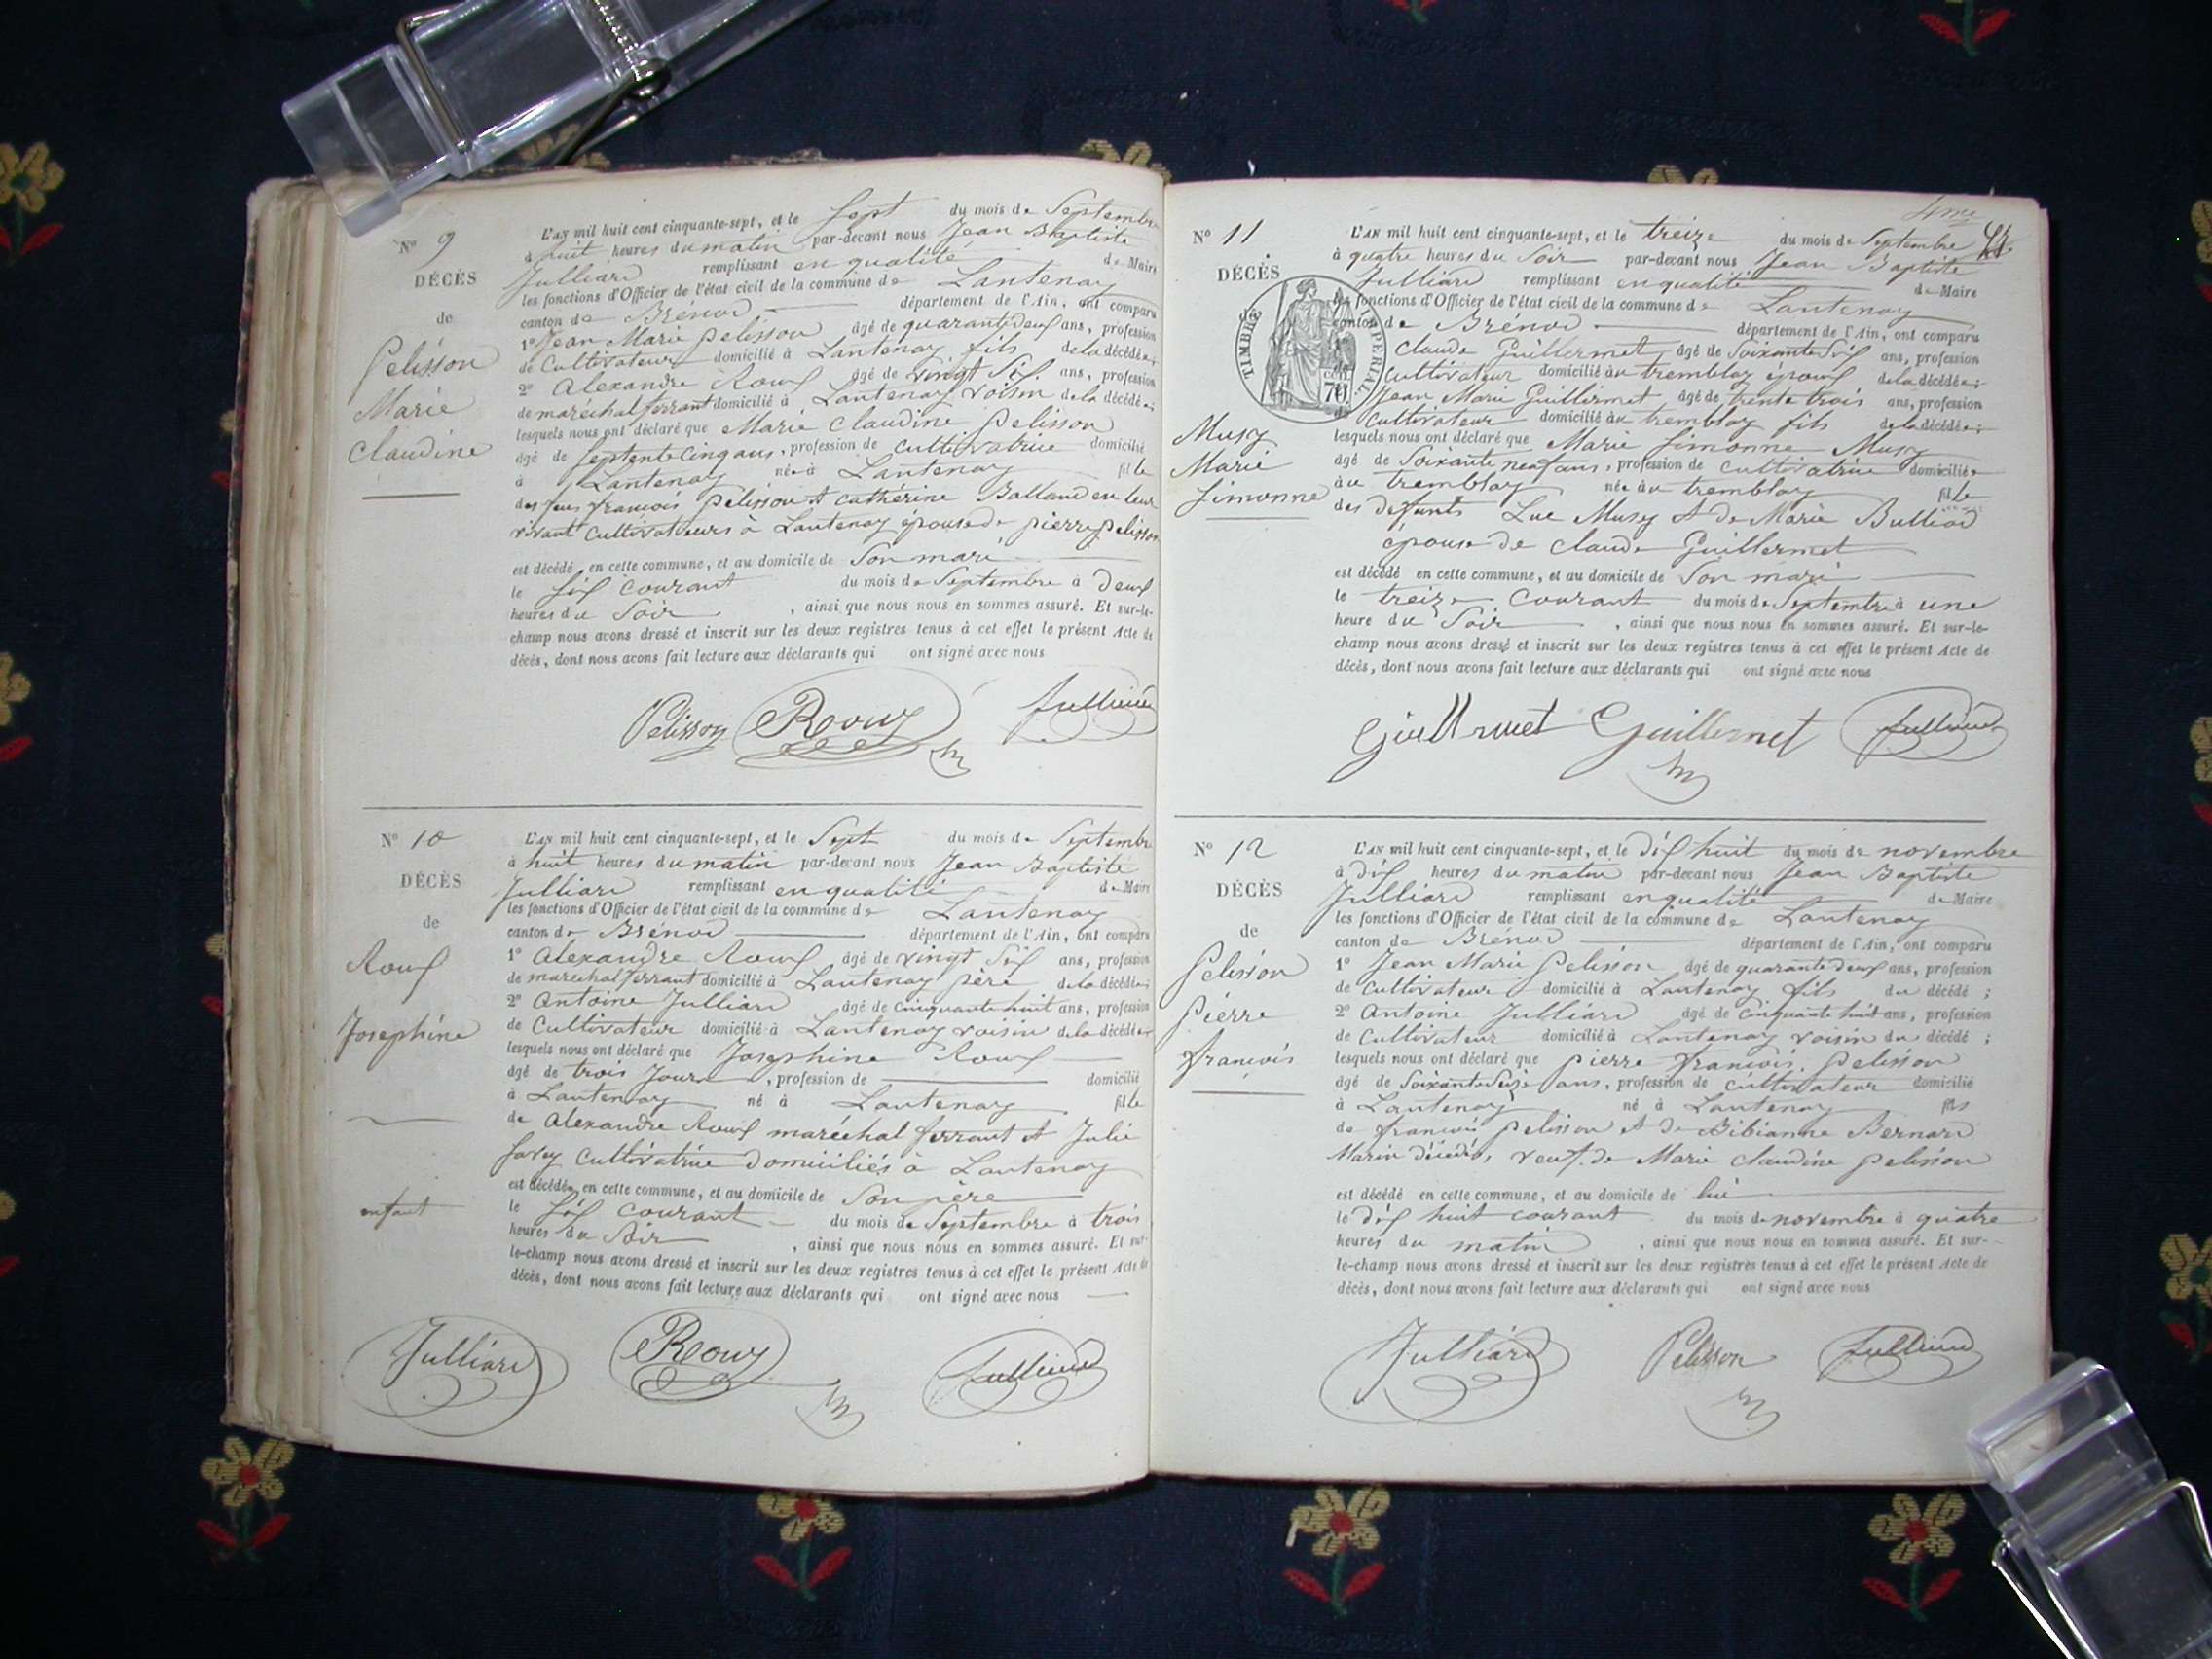 N° 9
L'AN mil huit cent cinquante-sept, et le Sept du mois de Septembre
à huit heures du matin par-devant nous Jean Baptiste
Julliard remplissant en qualité de Maire
les fonctions d'Officier de l'état civil de la commune de Lantenay
canton de Brénod département de l'Ain, ont comparu
1° Jean Marie Pelisson âgé de quarante deux ans, profession
de Cultivateur domicilié à Lantenay fils de la décédée;
2° Alexandre Roux âgé de vingt Six ans, profession
de maréchal ferrant domicilié à Lantenay voisin de la décédée;
lesquels nous ont déclaré que Marie Claudine Pelisson
âgé de Septente Cinq ans, profession de Cultivatrice domicilié
à Lantenay née à Lantenay fille
des feus françois Pelisson et Cathérine Balland en leur
vivant Cultivateurs à Lantenay épouse de pierre Pelisson
est décédé en cette commune, et au domicile de Son mari
le Six courant du mois de Septembre à Deux
heures du Soir, ainsi que nous nous en sommes assuré. Et sur-le-
champ nous avons dressé et inscrit sur les deux registres tenus à cet effet le présent Acte de
décès, dont nous avons fait lecture aux déclarants qui ont signé avec nous
DÉCÈS
de
Pelisson
Marie
Claudine
Pelisson Roux Julliard
N° 10
L'AN mil huit cent cinquante-sept, et le Sept du mois de Septembre
à huit heures du matin par-devant nous Jean Baptiste
Julliard remplissant en qualité de Maire
les fonctions d'Officier de l'état civil de la commune de Lantenay
canton de Brénod département de l'Ain, ont comparu
1° Alexandre Roux âgé de vingt Six ans, profession
de marechal ferrant domicilié à Lantenay père de la décédée;
2° Antoine Julliard âgé de Cinquante huit ans, profession
de Cultivateur domicilié à Lantenay voisin de la décédée;
lesquels nous ont déclaré que Josephine Roux
âgé de trois Jours, profession de domicilié
à Lantenay né à Lantenay fille
de Alexandre Roux maréchal ferrant et Julie
Savey Cultivatrice Domiciliés à Lantenay
est décédée en cette commune, et au domicile de Son père
le Six courant du mois de Septembre à trois
heures du Soir, ainsi que nous nous en sommes assuré. Et sur-
le-champ nous avons dressé et inscrit sur les deux registres tenus à cet effet le présent Acte de
décès, dont nous avons fait lecture aux déclarants qui ont signé avec nous
DÉCÈS
de
Roux
Josephine
enfant
Julliard Roux Julliard
4me
N° 11
L'AN mil huit cent cinquante-sept, et le treize du mois de Septembre
à quatre heures du Soir par-devant nous Jean Baptiste
Julliard remplissant en qualité de Maire
les fonctions d'Officier de l'état civil de la commune de Lantenay
canton de Brénod département de l'Ain, ont comparu
Claude Guillermet âgé de Soixante Six ans, profession
Cultivateur domicilié au tremblay époux de la décédée;
Jean Marie Guillermet âgé de trente trois ans, profession
Cultivateur domicilié au tremblay fils de la décédée;
lesquels nous ont déclaré que Marie Simonne Musy
âgé de Soixante neuf ans, profession de Cultivatrice domiciliée
au tremblay née au tremblay fille
des defunts Luc Musy et de Marie Bulliod
épouse de Claude Guillermet
est décédé en cette commune, et au domicile de Son mari
le treize Courant du mois de Septembre à une
heure du Soir, ainsi que nous nous en sommes assuré. Et sur-le-
champ nous avons dressé et inscrit sur les deux registres tenus à cet effet le présent Acte de
décès, dont nous avons fait lecture aux déclarants qui ont signé avec nous
DÉCÈS
TIMBRE IMPERIAL
70
Musy
Marie
Simonne
Guillermet Guillermet Julliard
N° 12
L'AN mil huit cent cinquante-sept, et le dix huit du mois de novembre
à dix heures du matin par-devant nous Jean Baptiste
Julliard remplissant en qualité de Maire
les fonctions d'Officier de l'état civil de la commune de Lantenay
canton de Brénod département de l'Ain, ont comparu
1° Jean Marie Pelisson âgé de quarante deux ans, profession
de Cultivateur domicilié à Lantenay fils du décédé;
2° Antoine Julliard âgé de Cinquante huit ans, profession
de Cultivateur domicilié à Lantenay voisin du décédé;
lesquels nous ont déclaré que pierre françois Pelisson
âgé de Soixante Seize ans, profession de cultivateur domicilié
à Lantenay né à Lantenay fils
de françois Pelisson et de Bibianne Bernard
Marin décédés, veuf de Marie Claudine Pelisson
est décédé en cette commune, et au domicile de lui
le dix huit courant du mois de novembre à quatre
heures du matin, ainsi que nous nous en sommes assuré. Et sur-
le-champ nous avons dressé et inscrit sur les deux registres tenus à cet effet le présent Acte de
décès, dont nous avons fait lecture aux déclarants qui ont signé avec nous
DÉCÈS
de
Pelisson
Pierre
françois
Julliard Pelisson Julliard